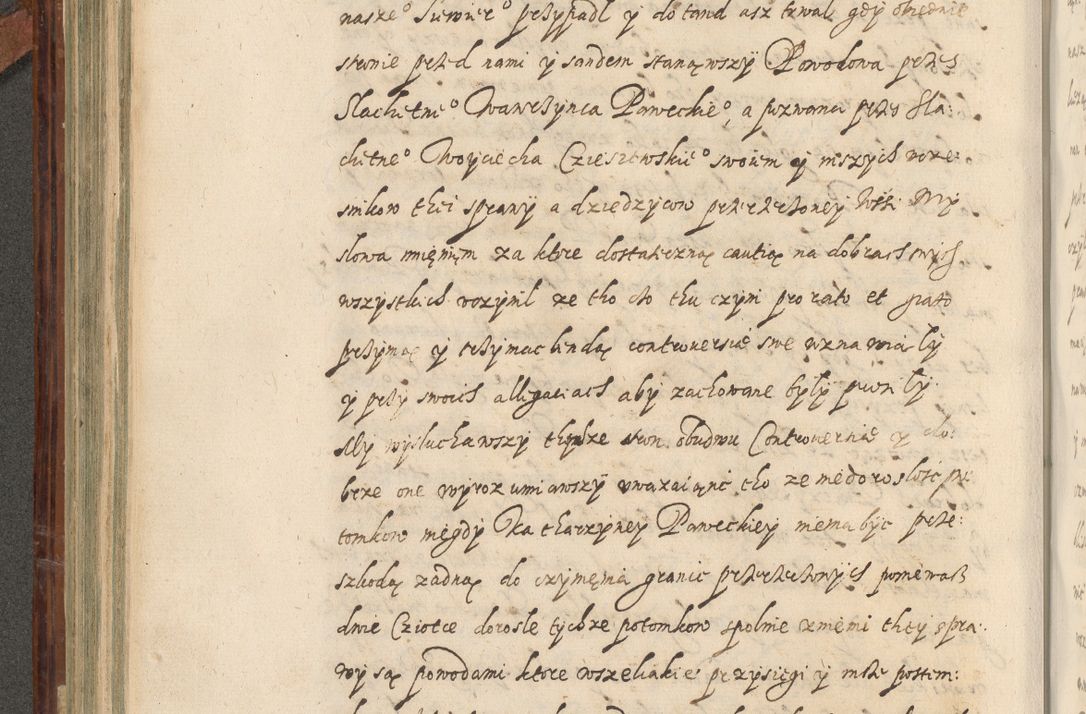 nasze° Summer° przypadł y dotand asz trwał gdy obiednie
stronie przed nami y sandem stanąwszy Powodowa przes
Slachetne° Wawrzynca Paweckie°, a pozwana przes Sla:
chetne° Woyciecha Czieszewskie° swoiem y inszych vcze:
snikow thei sprawy a dziedzycow przerzeczoney Wsi My
slowa imięniem za ktore dostateczną cautią na dobrach swych
wszystkich vczynil ze tho cżo thu czyni pro rato et grato
przyimą y trzymac bendą controuersie swe wznawiały
y przy swoich allegatiach aby zachowane były prosiły.
My wysłuchawszy thychze stron obudwu Controuersie y do:
brze one wyrozumiawszy vwazaiąnc tho ze niedorosłosc po
tomkow niegdy Katharzyney Paweckiey niema byc prze:
szkodą zadną do czynięnia granic przerzeczonych poniewasz
dwie Cziotce dorosłe tychze potomkow spolnie zniemi they spra:
wy są powodami ktore wszeliakie przysięgi y insze postem: